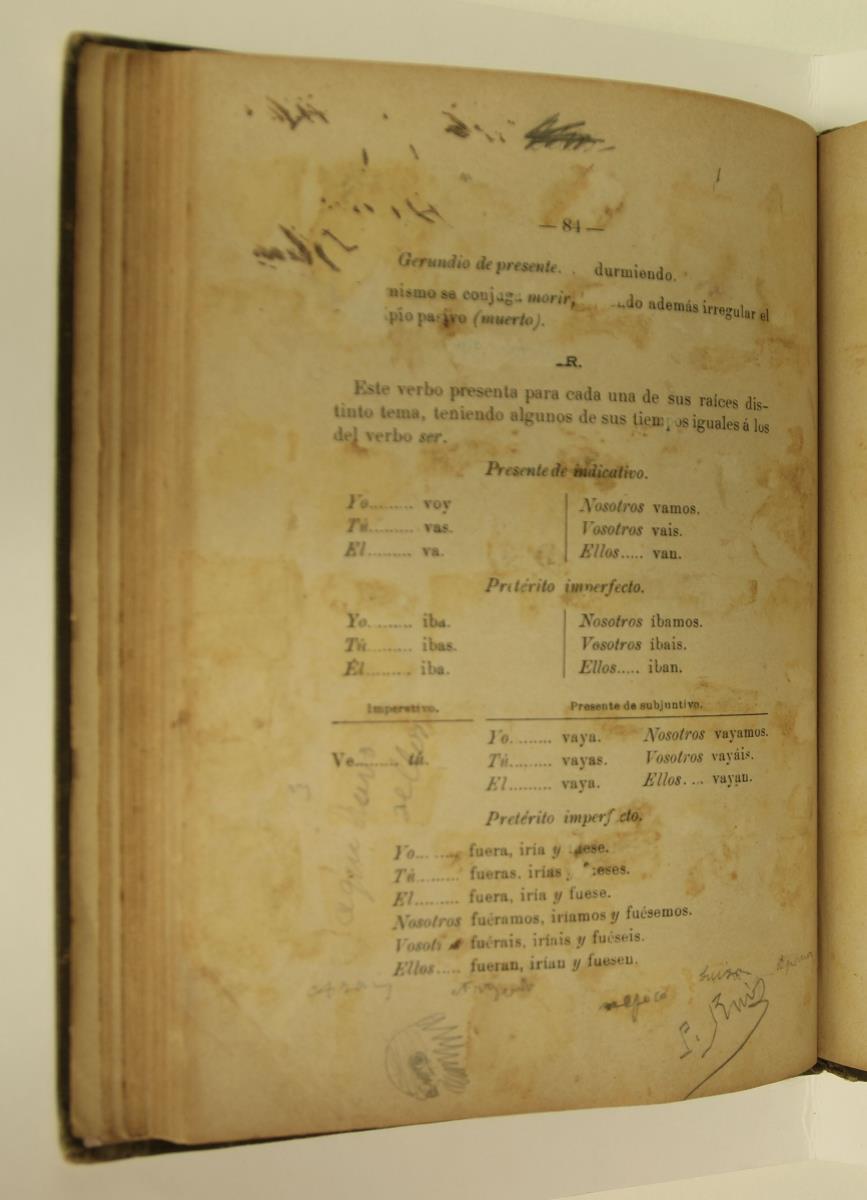 — 84 —
Gerundio de presente. . durmiendo.
nismo se conjuga morir, do además irregular el
pio pasivo (muerto).
R.
Este verbo presenta para cada una de sus raíces dis-
tinto tema, teniendo algunos de sus tiempos iguales á los
del verbo ser.
Presente de indicativo.
Yo......... voy
Tú......... vas.
El......... va.
Nosotros vamos.
Vosotros vais.
Ellos..... van.
Pretérito imperfecto.
Yo......... iba.
Tú......... ibas.
Él......... iba.
Nosotros íbamos.
Vosotros ibais.
Ellos..... iban.
Imperativo.
Ve......... tú.
Presente de subjuntivo.
Yo......... vaya. Nosotros vayamos.
Tú......... vayas. Vosotros vayáis.
El......... vaya. Ellos.... vayan.
Pretérito imperf cto.
Yo......... fuera, iría y uese.
Tú......... fueras, irías eses.
El......... fuera, iría y fuese.
Nosotros fuéramos, iríamos y fuésemos.
Vosot fuérais, iríais y fuéseis.
Ellos..... fueran, irían y fuesen.
Ruiz